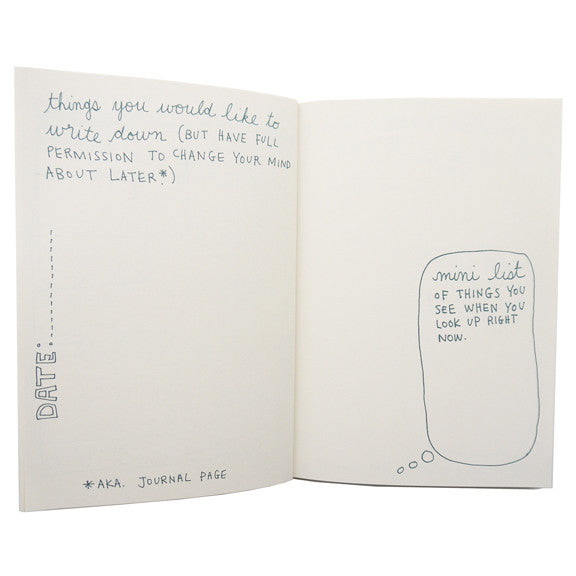 things you would like to
write down (BUT HAVE FULL
PERMISSION TO CHANGE YOUR MIND
ABOUT LATER*)
DATE:
*AKA. JOURNAL PAGE
mini list
OF THINGS YOU
SEE WHEN YOU
LOOK UP RIGHT
NOW.